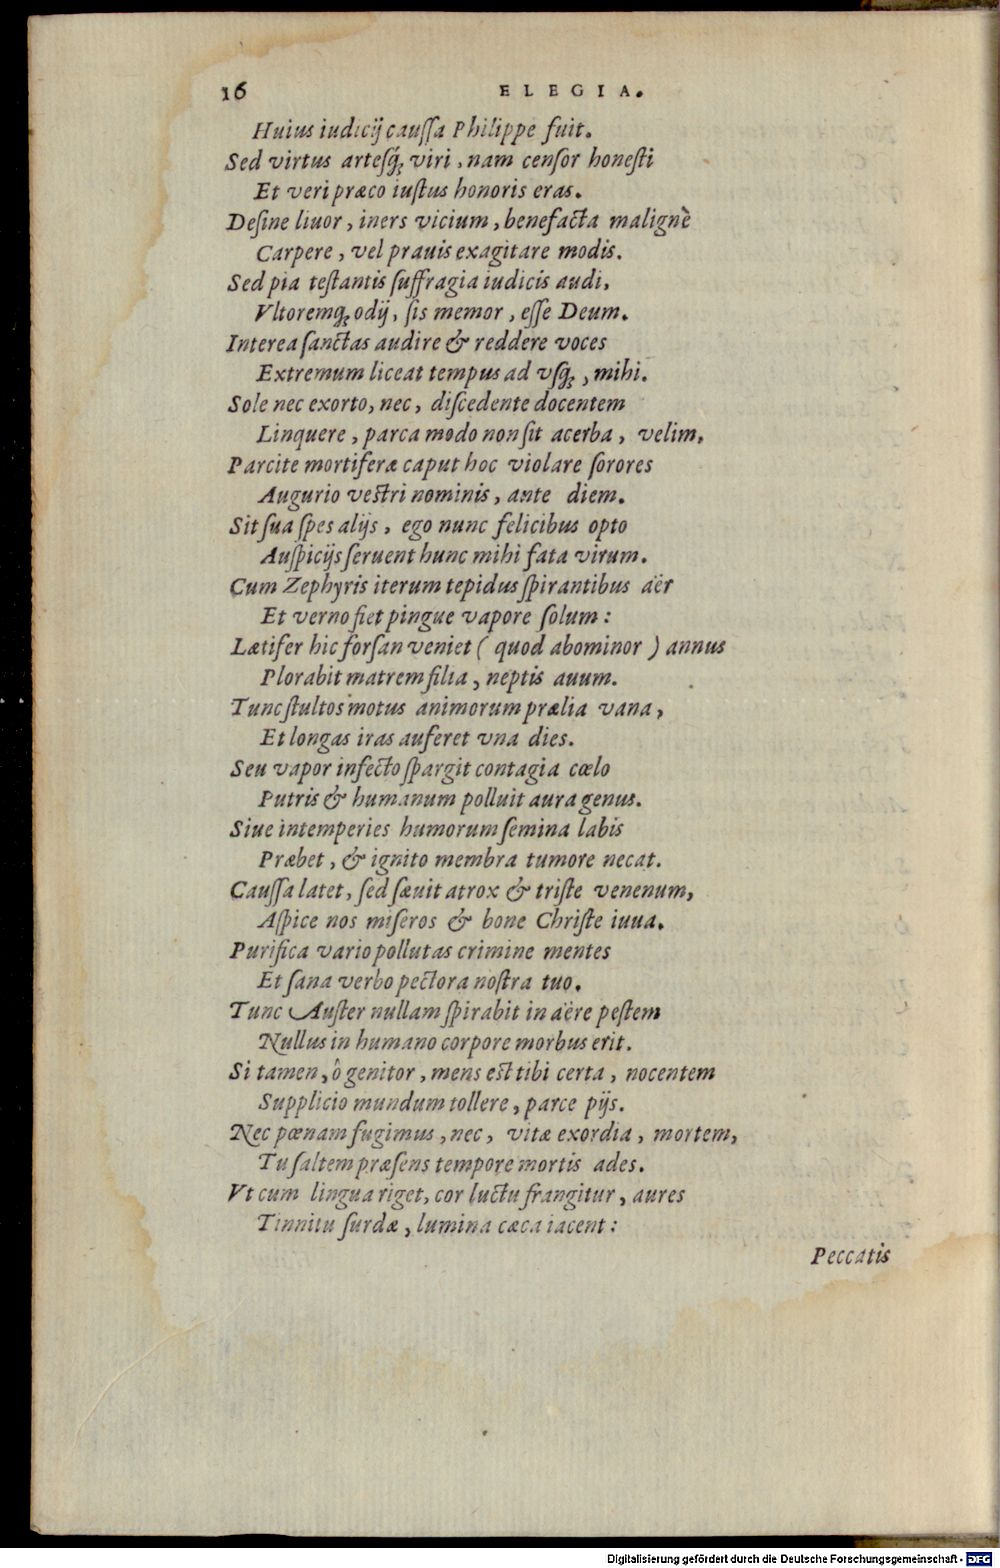 16 ELEGIA.
Huius iudicij cauſſa Philippe fuit.
Sed virtus artesq́ꝫ viri, nam cenſor honeſti
Et veri præco iuſtus honoris eras.
Deſine liuor, iners vicium, benefacta malignè
Carpere, vel prauis exagitare modis.
Sed pia teſtantis ſuffragia iudicis audi,
Vltoremqꝫ odij, ſis memor, eſſe Deum.
Interea ſanctas audire & reddere voces
Extremum liceat tempus ad vſqꝫ, mihi.
Sole nec exorto, nec, diſcedente docentem
Linquere, parca modo non ſit acerba, velim,
Parcite mortiferæ caput hoc violare ſorores
Augurio veſtri nominis, ante diem.
Sit ſua ſpes alijs, ego nunc felicibus opto
Auſpicijs ſeruent hunc mihi fata virum.
Cum Zephyris iterum tepidus ſpirantibus aër
Et verno fiet pingue vapore ſolum:
Lætifer hic forſan veniet (quod abominor) annus
Plorabit matrem filia, neptis auum.
Tunc ſtultos motus animorum prælia vana,
Et longas iras auferet vna dies.
Seu vapor infecto ſpargit contagia cœlo
Putris & humanum polluit aura genus.
Siue intemperies humorum ſemina labis
Præbet, & ignito membra tumore necat.
Cauſſa latet, ſed ſæuit atrox & triſte venenum,
Aſpice nos miſeros & bone Chriſte iuua.
Purifica vario pollutas crimine mentes
Et ſana verbo pectora noſtra tuo.
Tunc Auſter nullam ſpirabit in aëre peſtem
Nullus in humano corpore morbus erit.
Si tamen, ô genitor, mens eſt tibi certa, nocentem
Supplicio mundum tollere, parce pijs.
Nec pœnam fugimus, nec, vitæ exordia, mortem,
Tu ſaltem præſens tempore mortis ades.
Vt cum lingua riget, cor luctu frangitur, aures
Tinnitu ſurdæ, lumina cæca iacent:
Peccatis
Digitalisierung gefördert durch die Deutsche Forschungsgemeinschaft - DFG